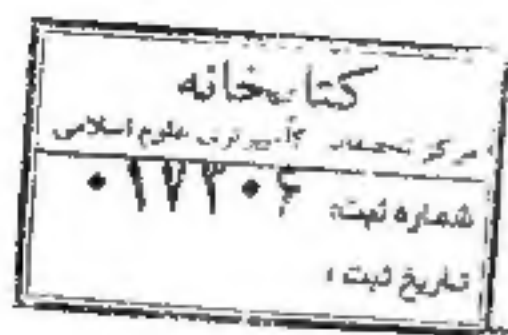 کتابخانه
مرکز تحقیقات کامپیوتری علوم اسلامی
شماره ثبت: ۰۱۷۳۰۶
تاریخ ثبت: